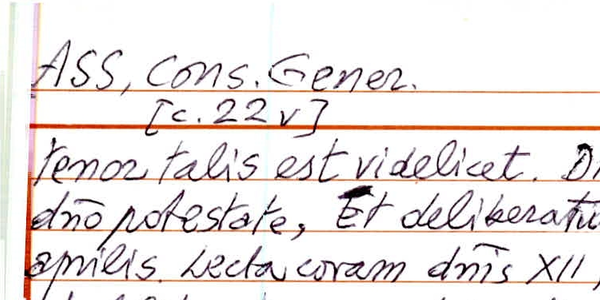 ASS, Cons. Gener.
[c. 22 v]
tenor talis est videlicet. D
dn̄o potestate, Et deliberatu
aprilis. Lecta coram dn̄is XII